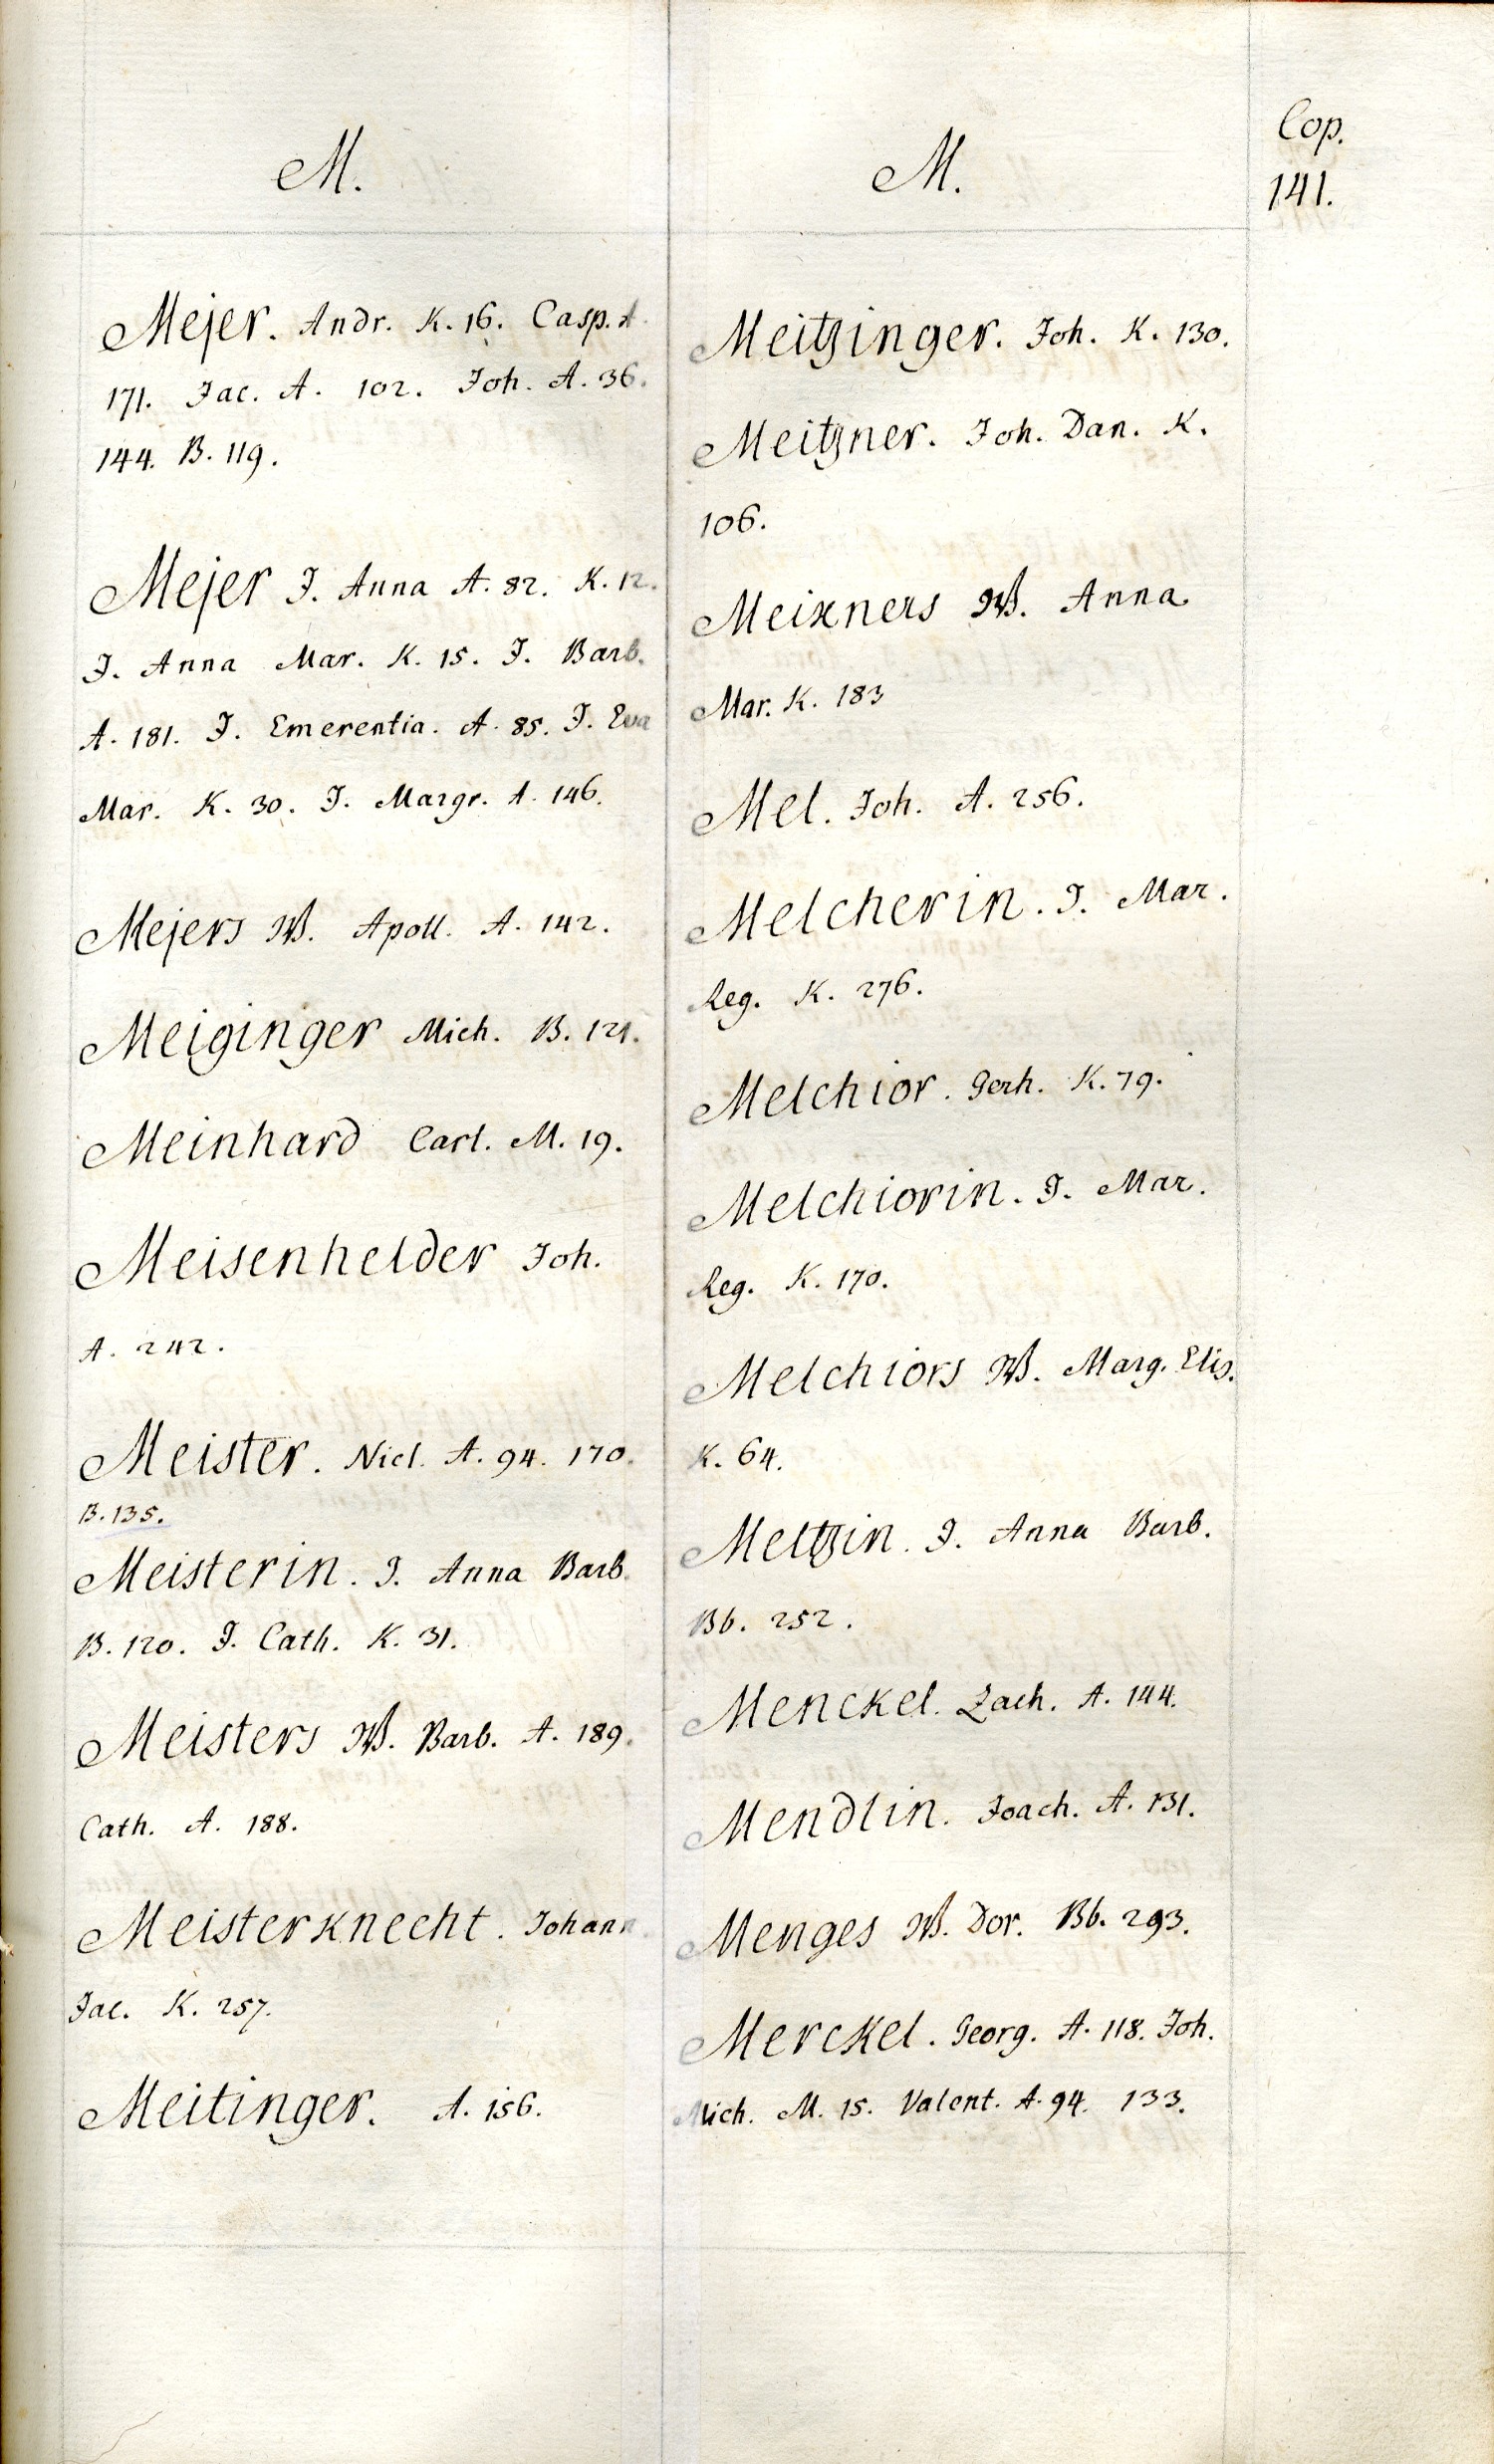 Cop.
141.
M.
Mejer. Andr. K. 16. Casp. A.
171. Jac. A. 102. Joh. A. 36.
144. B. 119.
Mejer J. Anna A. 82. K. 12.
J. Anna Mar. K. 15. J. Barb.
A. 181. J. Emerentia. A. 85. J. Eva
Mar. K. 30. J. Margr. A. 146.
Mejers W. Apoll. A. 142.
Meiginger Mich. B. 121.
Meinhard Carl. M. 19.
Meisenhelder Joh.
A. 242.
Meister. Nicl. A. 94. 170.
B. 135.
Meisterin. J. Anna Barb.
B. 120. J. Cath. K. 31.
Meisters W. Barb. A. 189.
Cath. A. 188.
Meisterknecht. Johann
Jac. K. 257.
Meitinger. A. 156.
M.
Meitzinger. Joh. K. 130.
Meitzner. Joh. Dan. K.
106.
Meixners W. Anna
Mar. K. 183
Mel. Joh. A. 256.
Melcherin. J. Mar.
Reg. K. 276.
Melchior. Gerh. K. 79.
Melchiorin. J. Mar.
Reg. K. 170.
Melchiors W. Marg. Elis.
K. 64.
Meltzin. J. Anna Barb.
Bb. 252.
Menckel. Zach. A. 144.
Mendlin. Joach. A. 131.
Menges W. Dor. Bb. 293.
Merckel. Georg. A. 118. Joh.
Mich. M. 15. Valent. A. 94. 133.